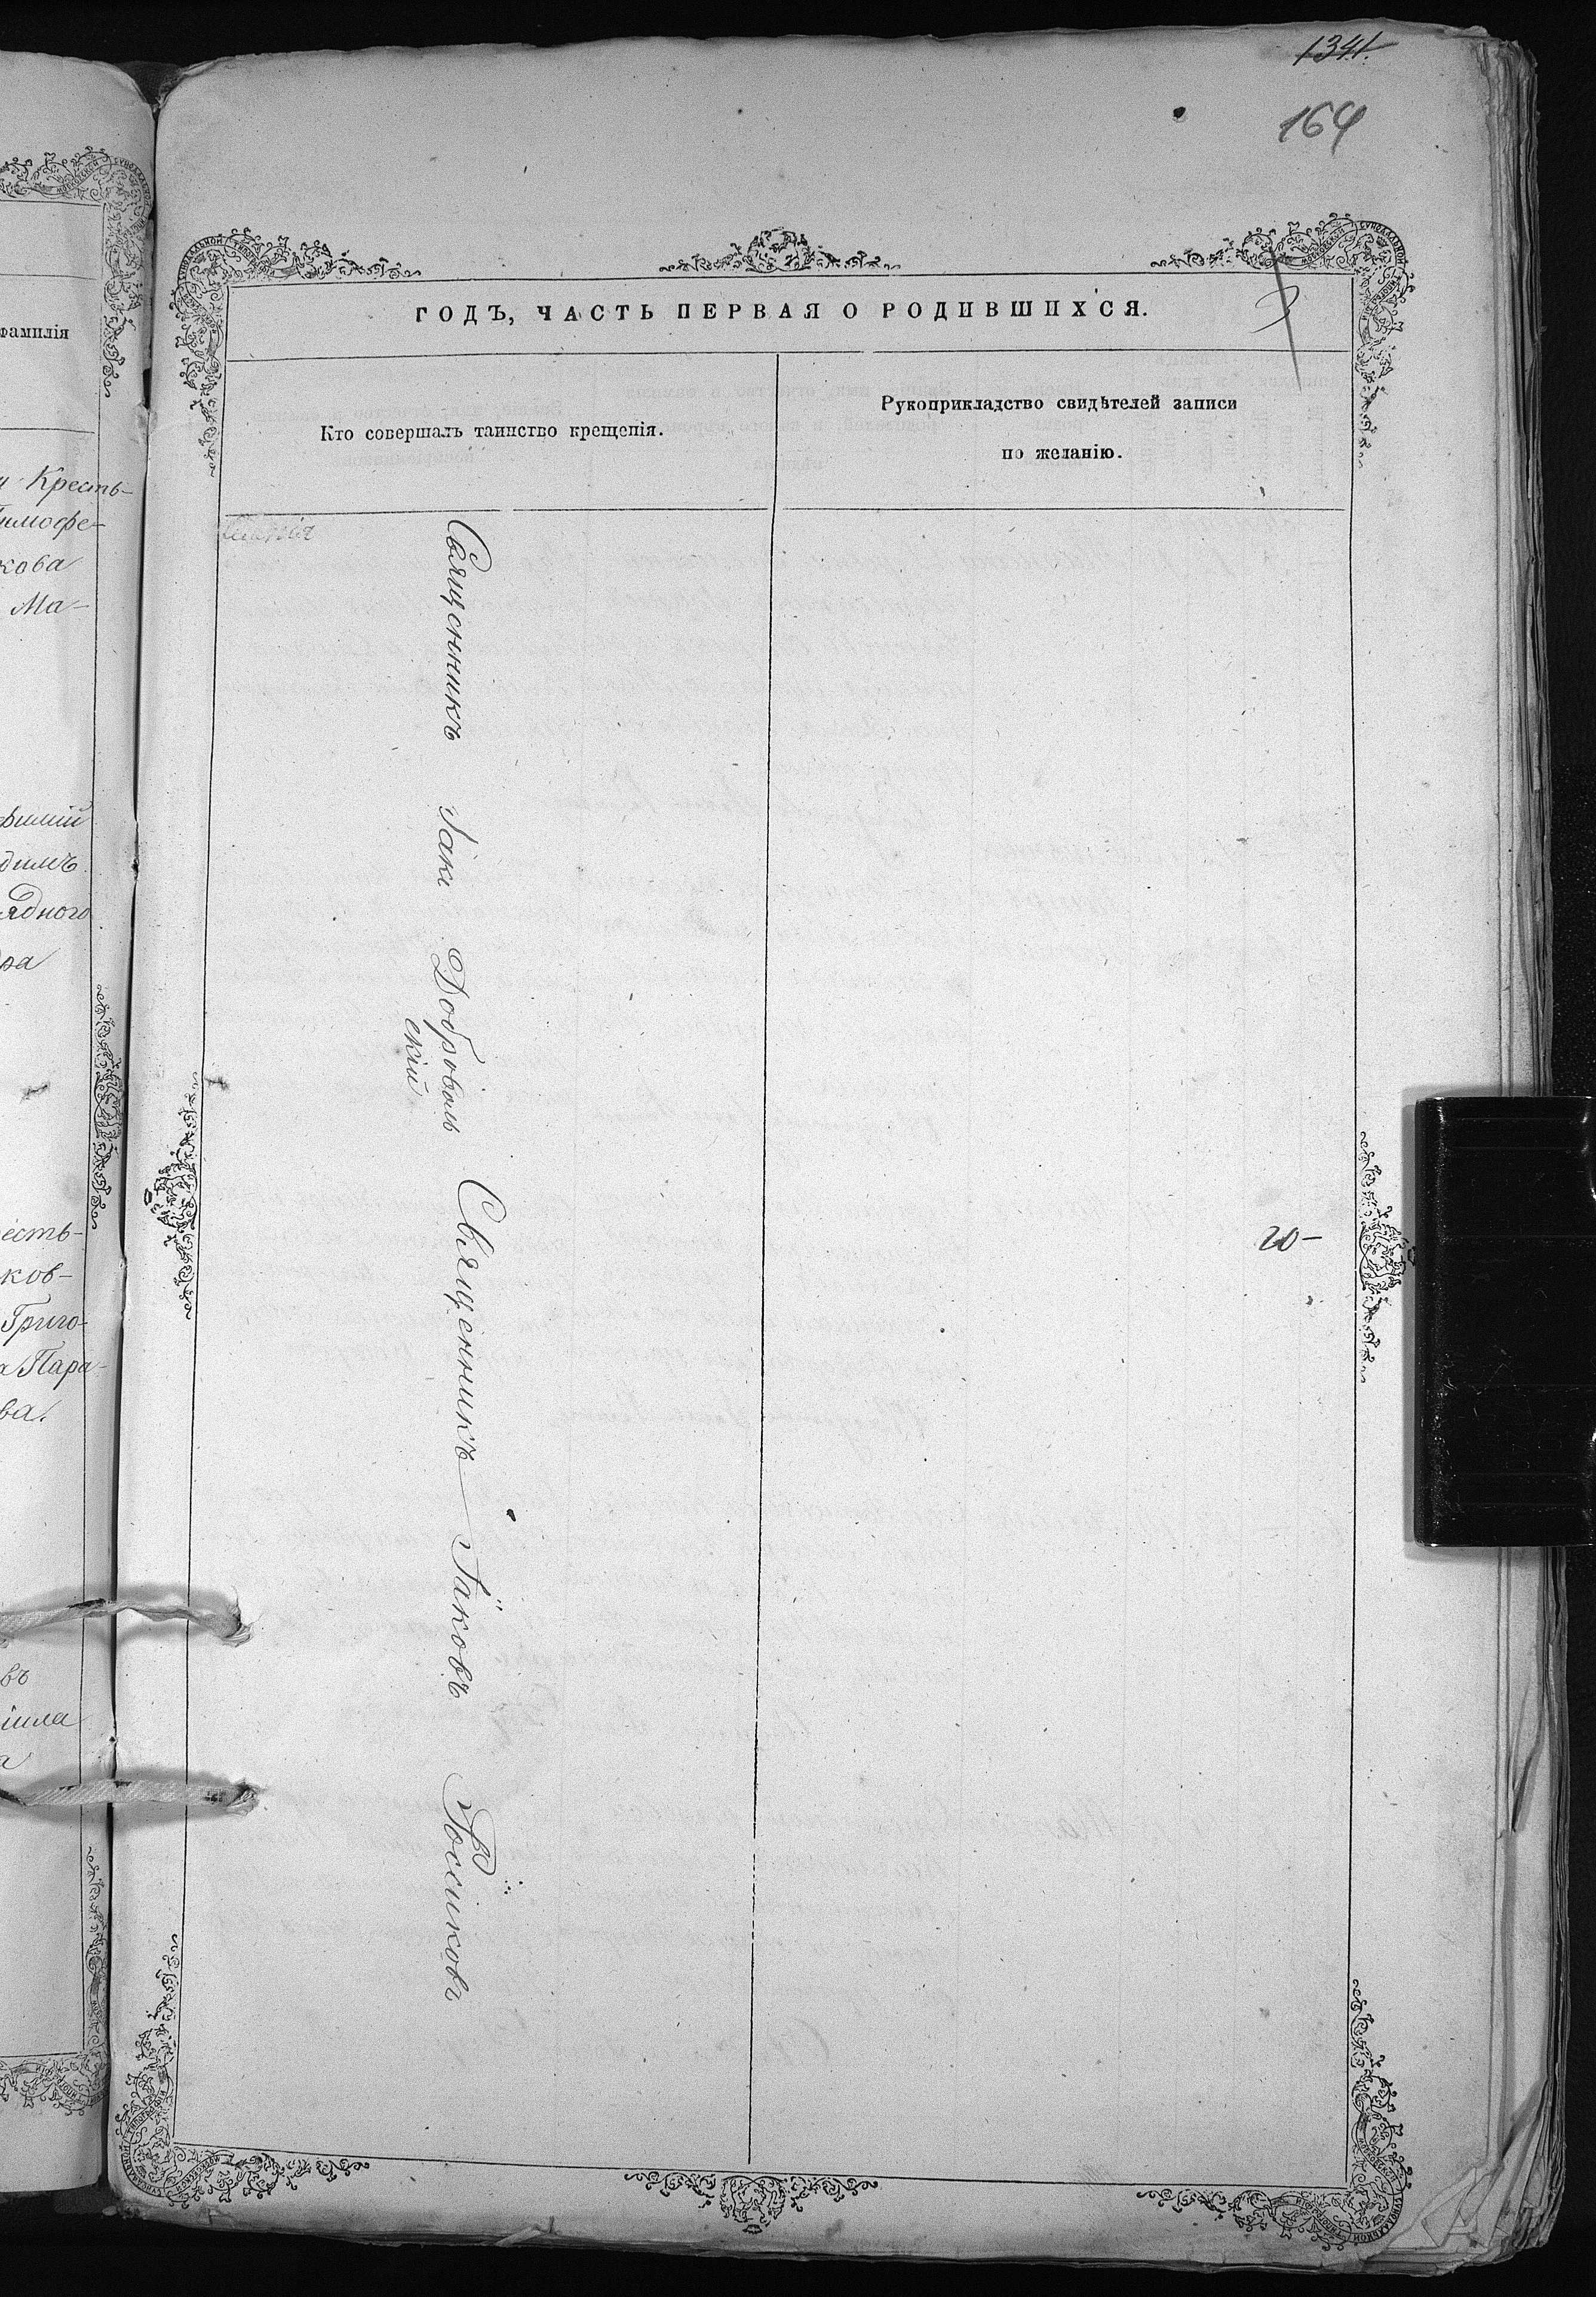 фамилія
и Кресть-
Тимофе-
кова
Ма-
ядного
ра
есть-
ков-
Григо-
а Пара-
ва.
въ
а
1341.
164
ГОДЪ, ЧАСТЬ ПЕРВАЯ О РОДИВШИХСЯ.
Кто совершалъ таинство крещенія.
Рукоприкладство свидѣтелей записи
по желанію.
Священникъ Доброволь
скій
Священникъ Іаковъ Россиковъ
20-